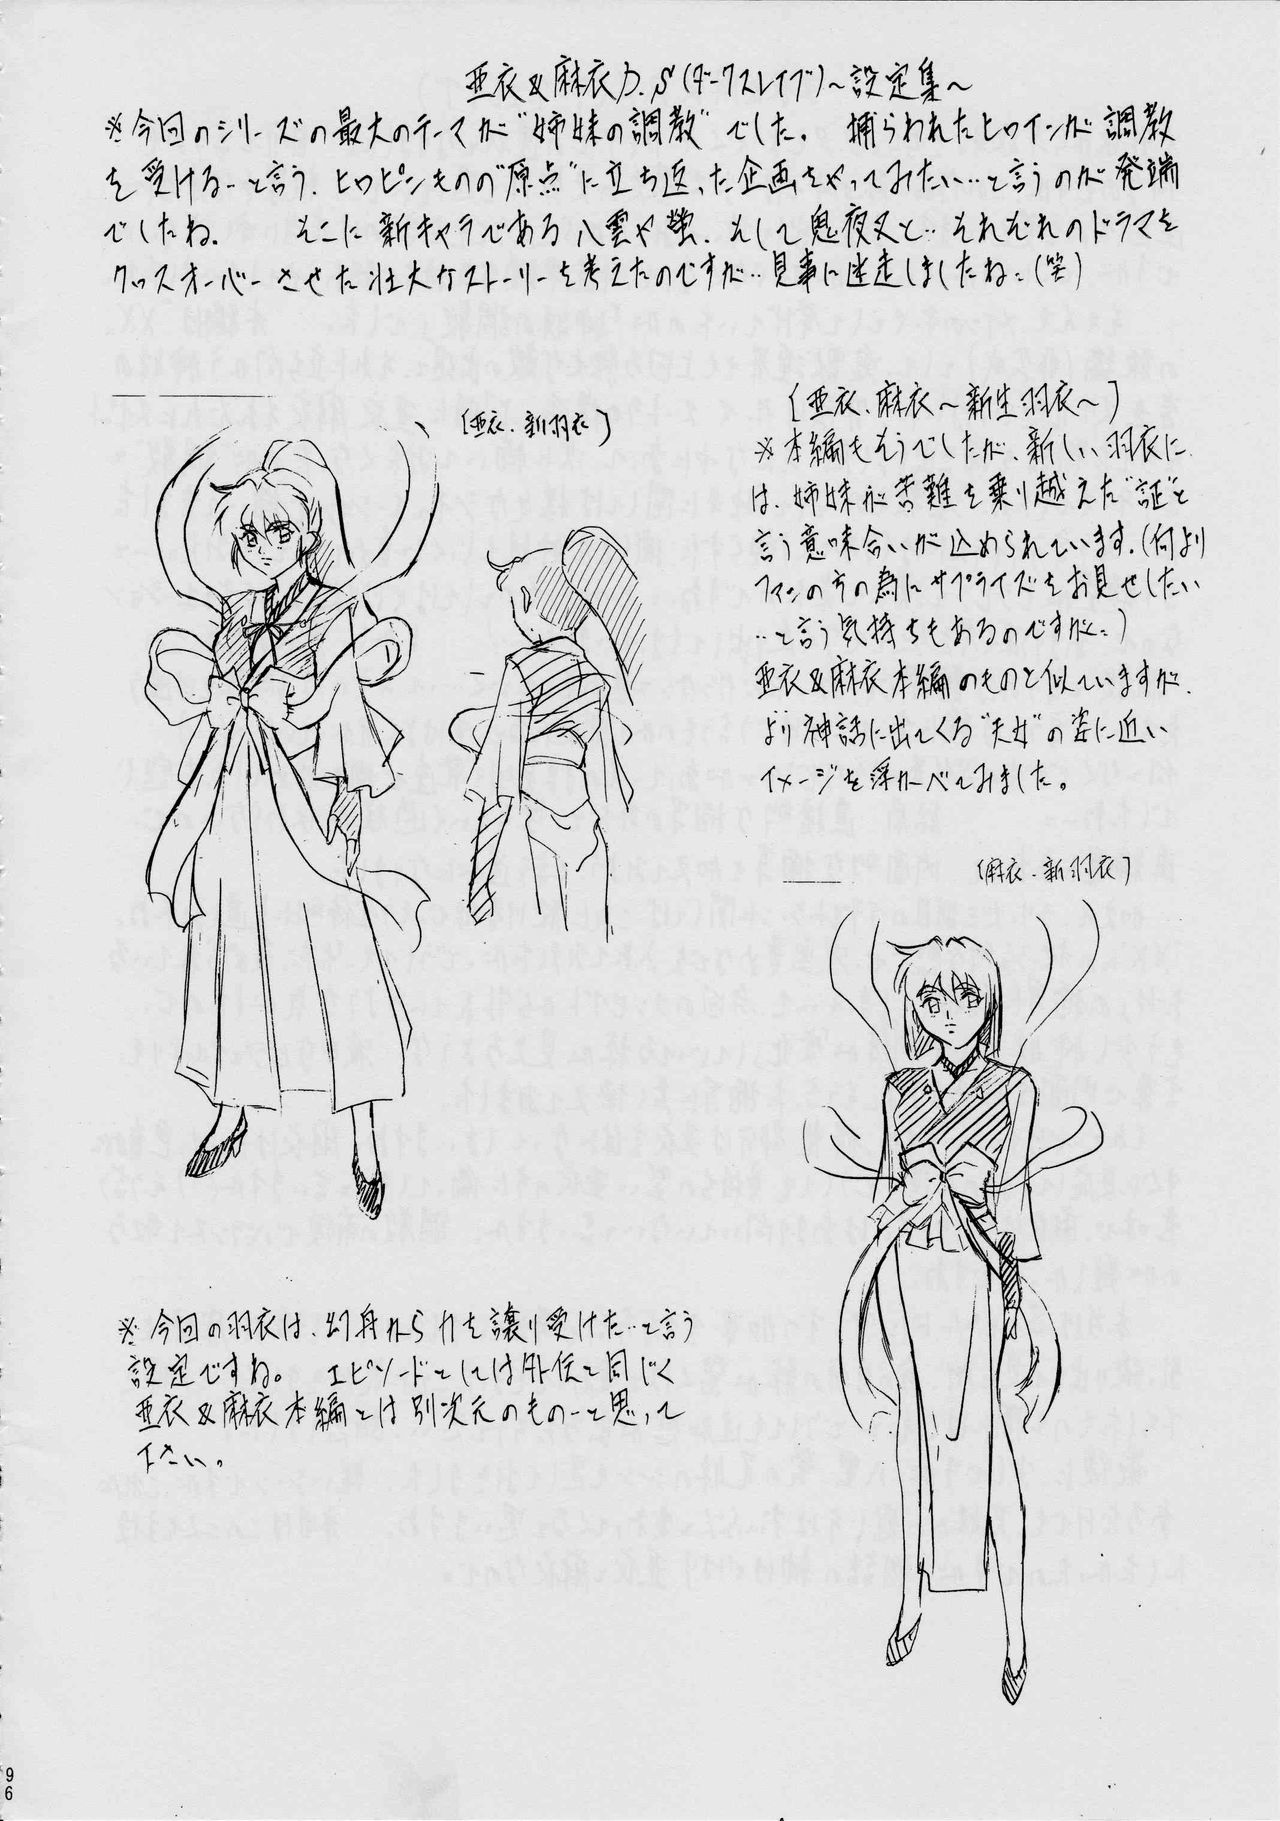 亜衣&麻衣D.S(ダークスレイブ)～設定集～
※今回のシリーズの最大のテーマが"姉妹の調教"でした。 捕らわれたヒロインが調教
を受ける…と言う、ヒロピンものの"原点"に立ち返った企画をやってみたい…と言うのが発端
でしたね。 そこに新キャラである八雲や蛍、そして鬼夜叉と…それぞれのドラマを
クロスオーバーさせた壮大なストーリーを考えたのですが…見事に迷走しましたね…(笑)
[亜衣・新羽衣]
[亜衣、麻衣～新生羽衣～]
※本編もそうでしたが、新しい羽衣に
は、姉妹が苦難を乗り越えた"証"と
言う意味合いが込められています。(何より
ファンの方の為にサプライズをお見せしたい
…と言う気持ちもあるのですが…)
亜衣&麻衣本編のものと似ていますが、
より神話に出てくる"天女"の姿に近い
イメージを浮かべてみました。
[麻衣・新羽衣]
※今回の羽衣は、幻舟から力を譲り受けた…と言う
設定ですね。 エピソードとしては外伝と同じく
亜衣&麻衣本編とは別次元のもの…と思って
下さい。
96